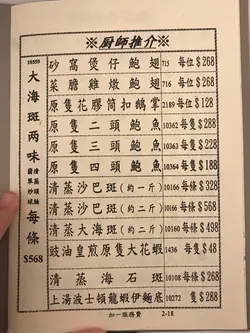 ※厨師推介※
10559
大海斑兩味 每條
清蒸頭腩
翡翠炒球
$568
砂窩煲仔鮑翅 715 每位 $268
菜膽雞燉鮑翅 716 每位 $268
原隻花膠筒扣鵝掌 2189 每位 $128
原隻二頭鮑魚 10362 每隻 $288
原隻三頭鮑魚 10363 每隻 $238
原隻四頭鮑魚 10364 每隻 $188
清蒸沙巴斑(約一斤) 10166 每條 $328
清蒸沙巴斑(約二斤) 10166 每條 $568
清蒸大海斑(約二斤) 10160 每條 $498
豉油皇煎原隻大花蝦 1436 每隻 $48
清蒸海石斑 10108 每條 $268
上湯波士頓龍蝦伊麵底 10272 隻 $288
加一服務費 2-18